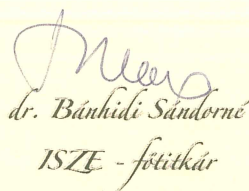 dr. Bánhidi Sándorné
ISZE - főtitkár